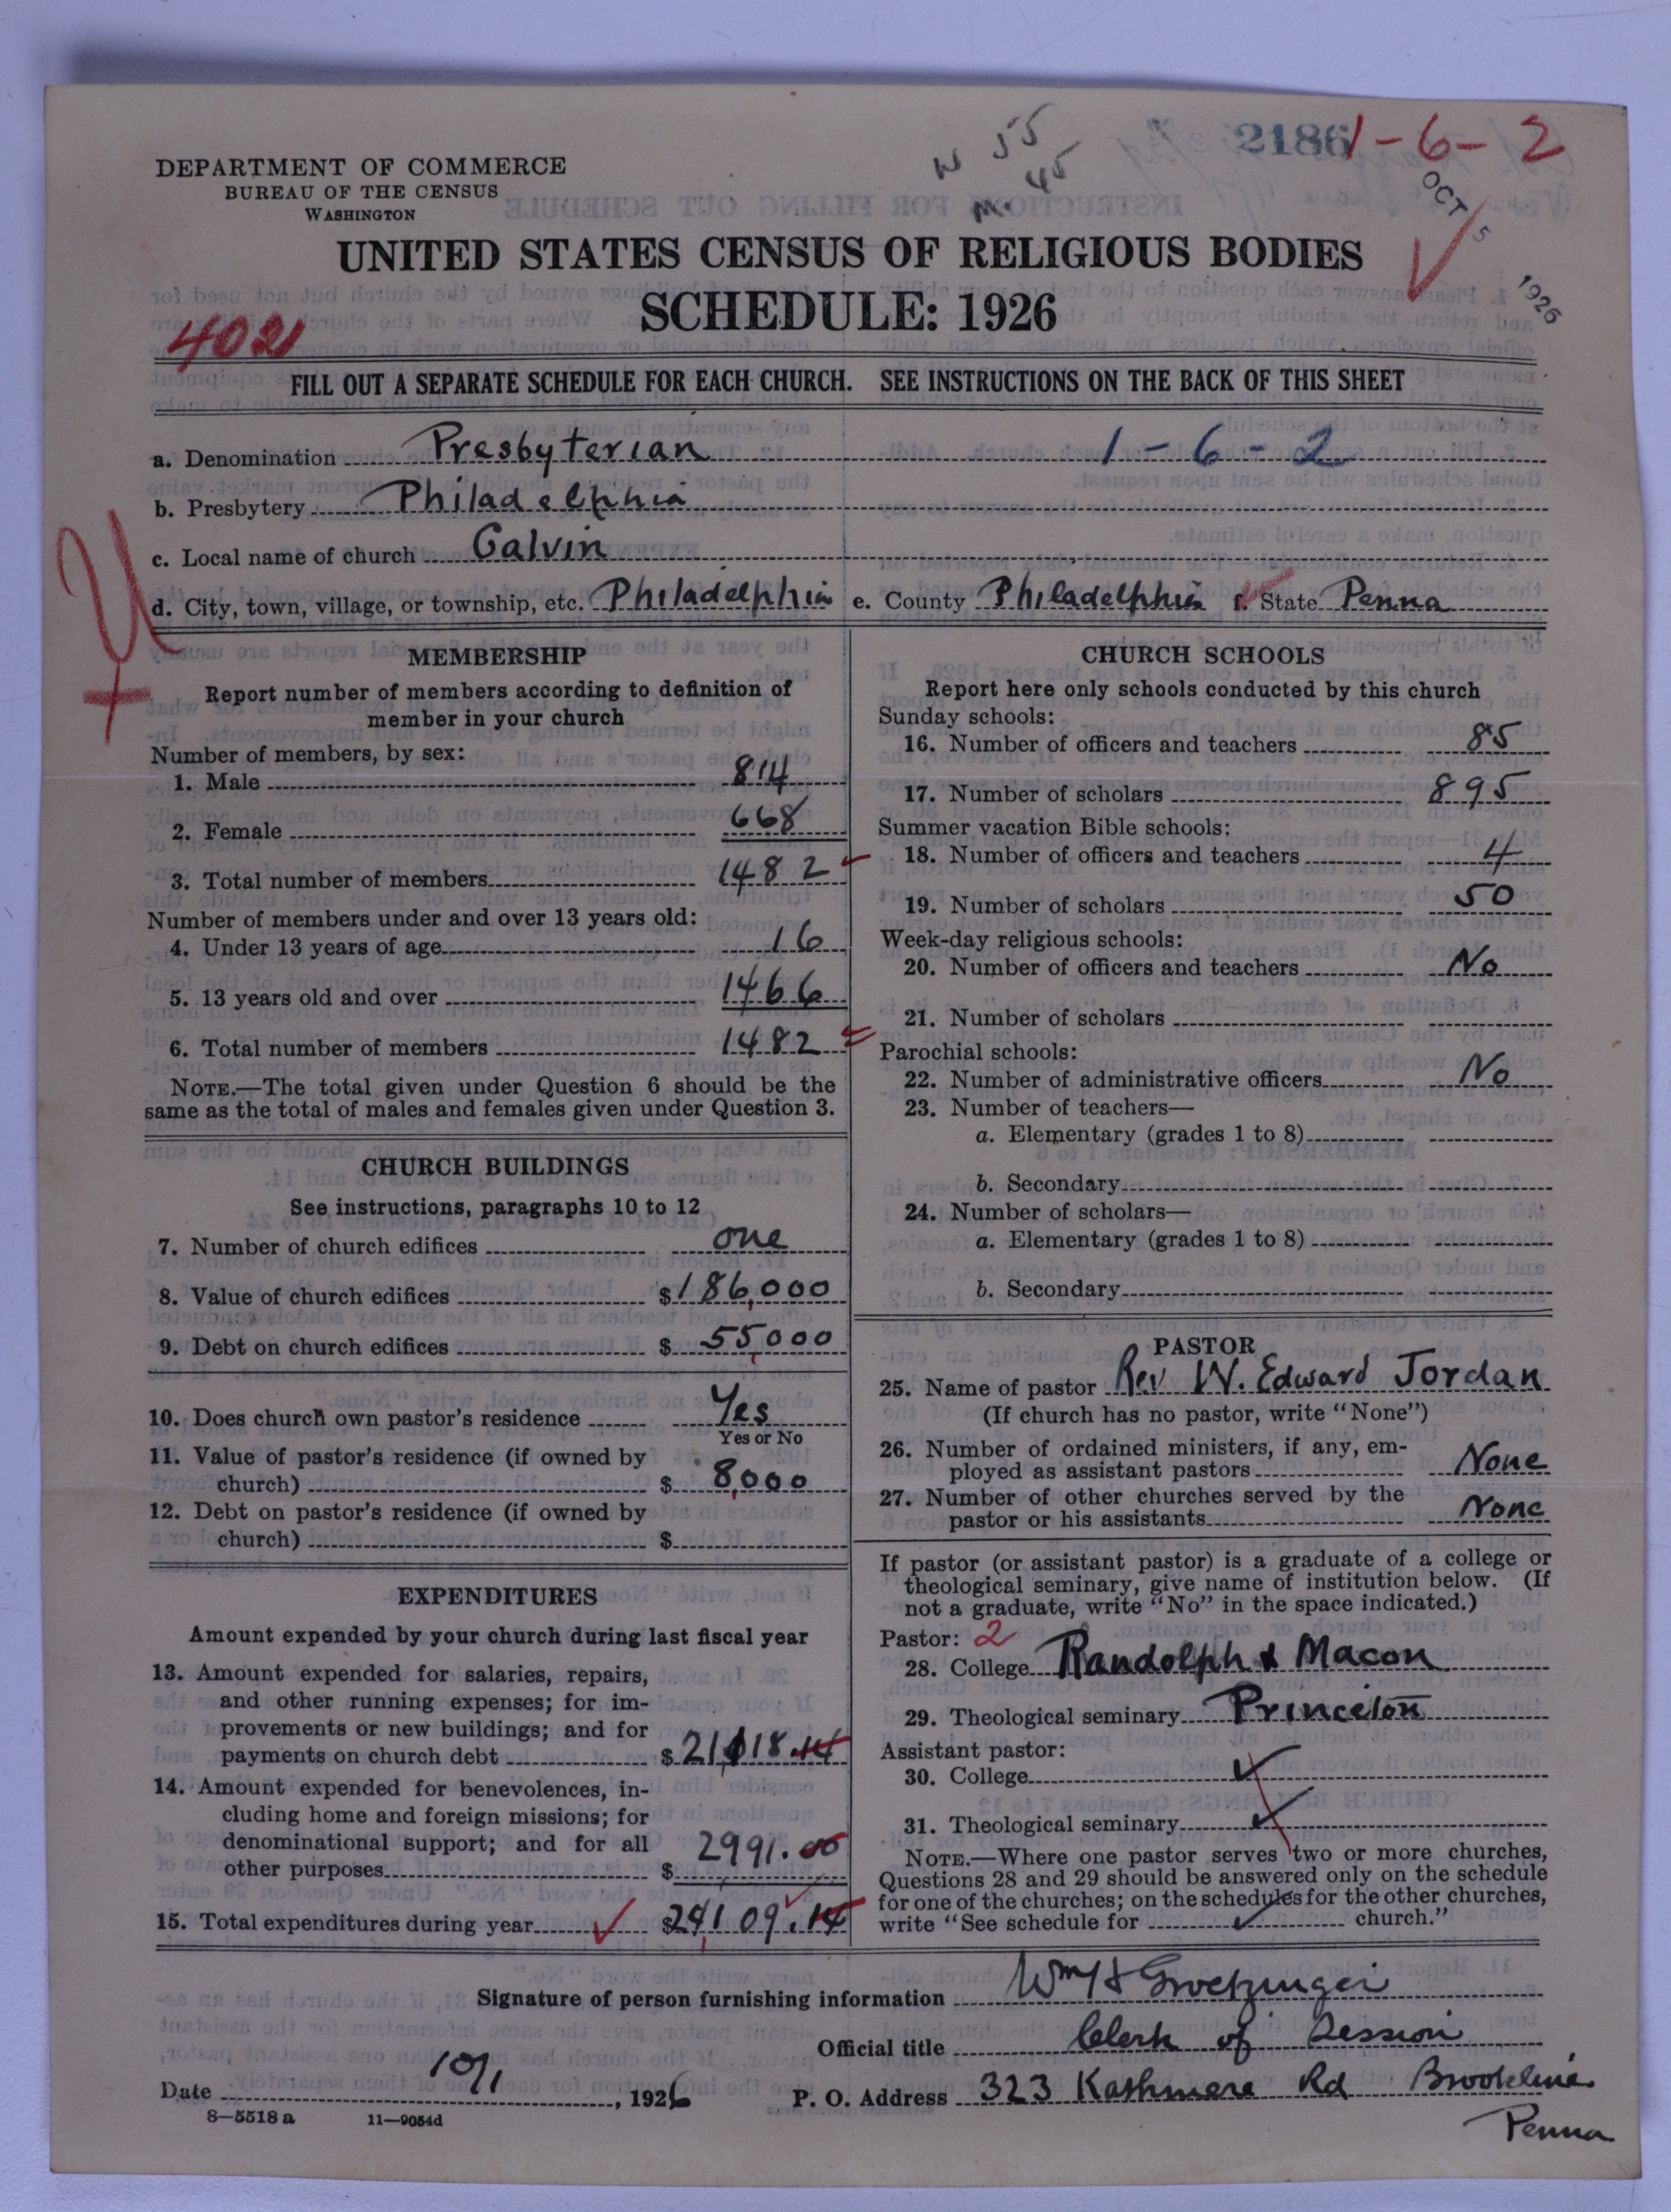 2186 1-6-2
W 55
M. 45
OCT 5 1926
DEPARTMENT OF COMMERCE
BUREAU OF THE CENSUS
WASHINGTON
UNITED STATES CENSUS OF RELIGIOUS BODIES
SCHEDULE: 1926
4021
FILL OUT A SEPARATE SCHEDULE FOR EACH CHURCH. SEE INSTRUCTIONS ON THE BACK OF THIS SHEET
a. Denomination Presbyterian 1-6-2
b. Presbytery Philadelphia
c. Local name of church Calvin
d. City, town, village, or township, etc. Philadelphia e. County Philadelphia f. State Penna
MEMBERSHIP
Report number of members according to definition of
member in your church
Number of members, by sex:
1. Male 814
2. Female 668
3. Total number of members 1482
Number of members under and over 13 years old:
4. Under 13 years of age 16
5. 13 years old and over 1466
6. Total number of members 1482
NOTE.—The total given under Question 6 should be the
same as the total of males and females given under Question 3.
CHURCH BUILDINGS
See instructions, paragraphs 10 to 12
7. Number of church edifices one
8. Value of church edifices $186,000
9. Debt on church edifices $55,000
10. Does church own pastor's residence Yes
Yes or No
11. Value of pastor's residence (if owned by
church) $8,000
12. Debt on pastor's residence (if owned by
church) $
EXPENDITURES
Amount expended by your church during last fiscal year
13. Amount expended for salaries, repairs,
and other running expenses; for im-
provements or new buildings; and for
payments on church debt $21,118.14
14. Amount expended for benevolences, in-
cluding home and foreign missions; for
denominational support; and for all
other purposes $2991.00
15. Total expenditures during year $24,109.14
CHURCH SCHOOLS
Report here only schools conducted by this church
Sunday schools:
16. Number of officers and teachers 85
17. Number of scholars 895
Summer vacation Bible schools:
18. Number of officers and teachers 4
19. Number of scholars 50
Week-day religious schools:
20. Number of officers and teachers No
21. Number of scholars
Parochial schools:
22. Number of administrative officers No
23. Number of teachers—
a. Elementary (grades 1 to 8)
b. Secondary
24. Number of scholars—
a. Elementary (grades 1 to 8)
b. Secondary
PASTOR
25. Name of pastor Rev W. Edward Jordan
(If church has no pastor, write "None")
26. Number of ordained ministers, if any, em-
ployed as assistant pastors None
27. Number of other churches served by the
pastor or his assistants None
If pastor (or assistant pastor) is a graduate of a college or
theological seminary, give name of institution below. (If
not a graduate, write "No" in the space indicated.)
Pastor: 2
28. College Randolph & Macon
29. Theological seminary Princeton
Assistant pastor:
30. College
31. Theological seminary
NOTE.—Where one pastor serves two or more churches,
Questions 28 and 29 should be answered only on the schedule
for one of the churches; on the schedules for the other churches,
write "See schedule for church."
Signature of person furnishing information Wm H Groetzinger
Official title Clerk of Session
Date 10/1, 1926 P. O. Address 323 Kathmere Rd Brookline
Penna
8—5518 a 11—9054d